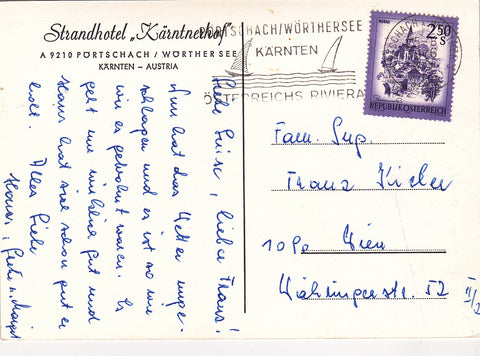 Strandhotel „Kärntnerhof"
A 9210 PÖRTSCHACH / WÖRTHER SEE
KÄRNTEN – AUSTRIA
PÖRTSCHACH/WÖRTHERSEE
KÄRNTEN
ÖSTERREICHS RIVIERA
2.50
S
REPUBLIK ÖSTERREICH
Liebe Luise, lieber Franz!
Nun hat das Wetter umge-
schlagen und es ist so wie
wir es gewohnt waren. Es
geht uns wirklich gut und
hat sich schon gut er
holt. Alles Liebe
Fam. Ing.
Franz
1090 Wien
Währingerstr. 52